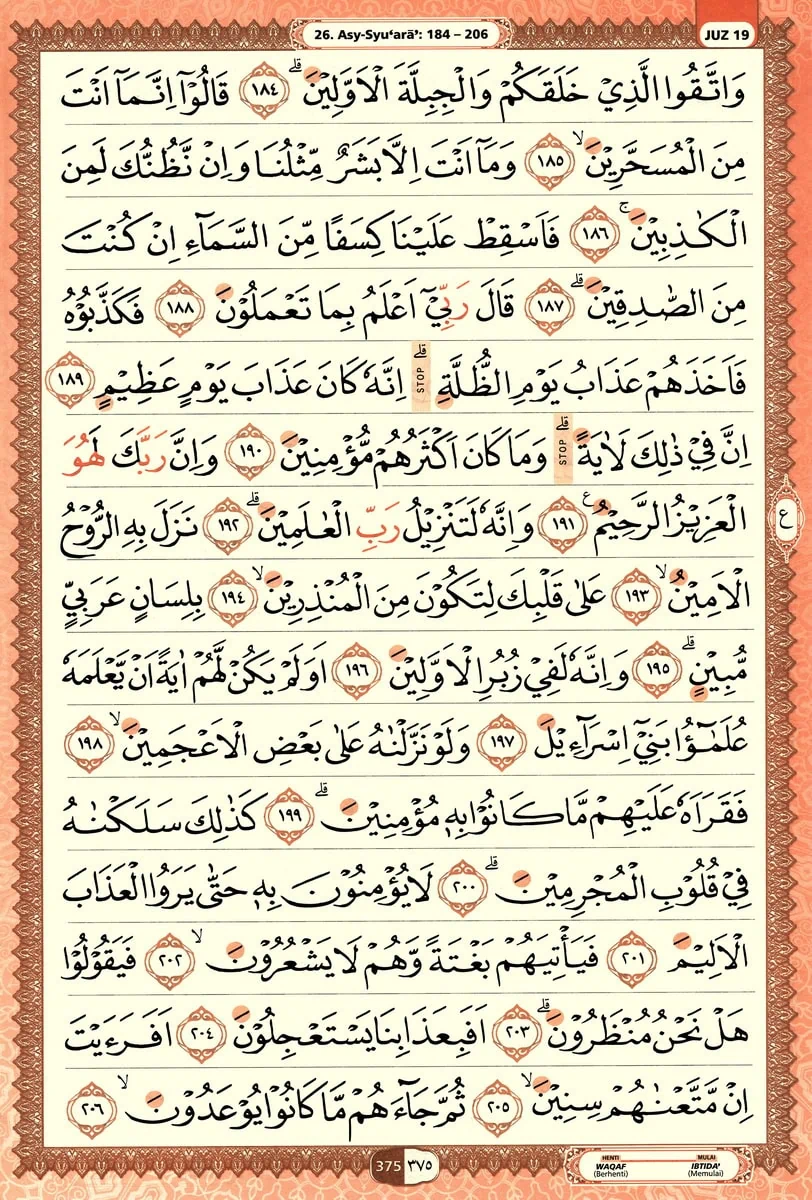 26. Asy-Syu‘arā’: 184 – 206
JUZ 19
وَاتَّقُوا الَّذِيْ خَلَقَكُمْ وَالْجِبِلَّةَ الْاَوَّلِيْنَ ۗ ١٨٤ قَالُوْٓا اِنَّمَآ اَنْتَ
مِنَ الْمُسَحَّرِيْنَ ۙ ١٨٥ وَمَآ اَنْتَ اِلَّا بَشَرٌ مِّثْلُنَا وَاِنْ نَّظُنُّكَ لَمِنَ
الْكٰذِبِيْنَ ۚ ١٨٦ فَاَسْقِطْ عَلَيْنَا كِسَفًا مِّنَ السَّمَاۤءِ اِنْ كُنْتَ
مِنَ الصّٰدِقِيْنَ ۗ ١٨٧ قَالَ رَبِّيْٓ اَعْلَمُ بِمَا تَعْمَلُوْنَ ١٨٨ فَكَذَّبُوْهُ
فَاَخَذَهُمْ عَذَابُ يَوْمِ الظُّلَّةِ ۗ STOP اِنَّهٗ كَانَ عَذَابَ يَوْمٍ عَظِيْمٍ ١٨٩
اِنَّ فِيْ ذٰلِكَ لَاٰيَةً ۗ STOP وَمَا كَانَ اَكْثَرُهُمْ مُّؤْمِنِيْنَ ١٩٠ وَاِنَّ رَبَّكَ لَهُوَ
الْعَزِيْزُ الرَّحِيْمُ ࣖ ١٩١ وَاِنَّهٗ لَتَنْزِيْلُ رَبِّ الْعٰلَمِيْنَ ۗ ١٩٢ نَزَلَ بِهِ الرُّوْحُ
ع
الْاَمِيْنُ ۙ ١٩٣ عَلٰى قَلْبِكَ لِتَكُوْنَ مِنَ الْمُنْذِرِيْنَ ۙ ١٩٤ بِلِسَانٍ عَرَبِيٍّ
مُّبِيْنٍ ۗ ١٩٥ وَاِنَّهٗ لَفِيْ زُبُرِ الْاَوَّلِيْنَ ١٩٦ اَوَلَمْ يَكُنْ لَّهُمْ اٰيَةً اَنْ يَّعْلَمَهٗ
عُلَمٰۤؤُا بَنِيْٓ اِسْرَاۤءِيْلَ ١٩٧ وَلَوْ نَزَّلْنٰهُ عَلٰى بَعْضِ الْاَعْجَمِيْنَ ۙ ١٩٨
فَقَرَاَهٗ عَلَيْهِمْ مَّا كَانُوْا بِهٖ مُؤْمِنِيْنَ ۗ ١٩٩ كَذٰلِكَ سَلَكْنٰهُ
فِيْ قُلُوْبِ الْمُجْرِمِيْنَ ۗ ٢٠٠ لَا يُؤْمِنُوْنَ بِهٖ حَتّٰى يَرَوُا الْعَذَابَ
الْاَلِيْمَ ٢٠١ فَيَأْتِيَهُمْ بَغْتَةً وَّهُمْ لَا يَشْعُرُوْنَ ۙ ٢٠٢ فَيَقُوْلُوْا
هَلْ نَحْنُ مُنْظَرُوْنَ ۗ ٢٠٣ اَفَبِعَذَابِنَا يَسْتَعْجِلُوْنَ ٢٠٤ اَفَرَءَيْتَ
اِنْ مَّتَّعْنٰهُمْ سِنِيْنَ ۙ ٢٠٥ ثُمَّ جَاۤءَهُمْ مَّا كَانُوْا يُوْعَدُوْنَ ۙ ٢٠٦
375 ٣٧٥
HENTI WAQAF (Berhenti)
MULAI IBTIDA' (Memulai)